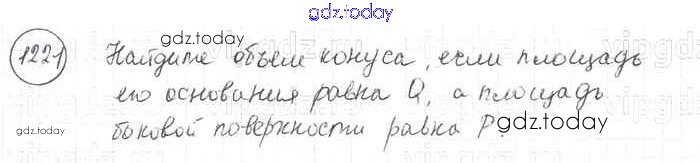 gdz.today
1221 gdz.today
Найдите объем конуса, если площадь
его основания равна Q, а площадь
gdz.today
боковой поверхности равна P.
gdz.today